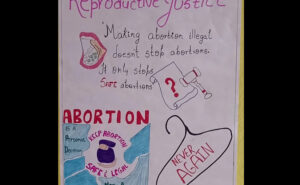 Reproductive Justice
"Making abortion illegal
doesnt stop abortions.
It only stops
SAFE abortions
?
ABORTION
IS A
Personal
Decision
KEEP ABORTION
SAFE & LEGAL
NEVER
AGAIN